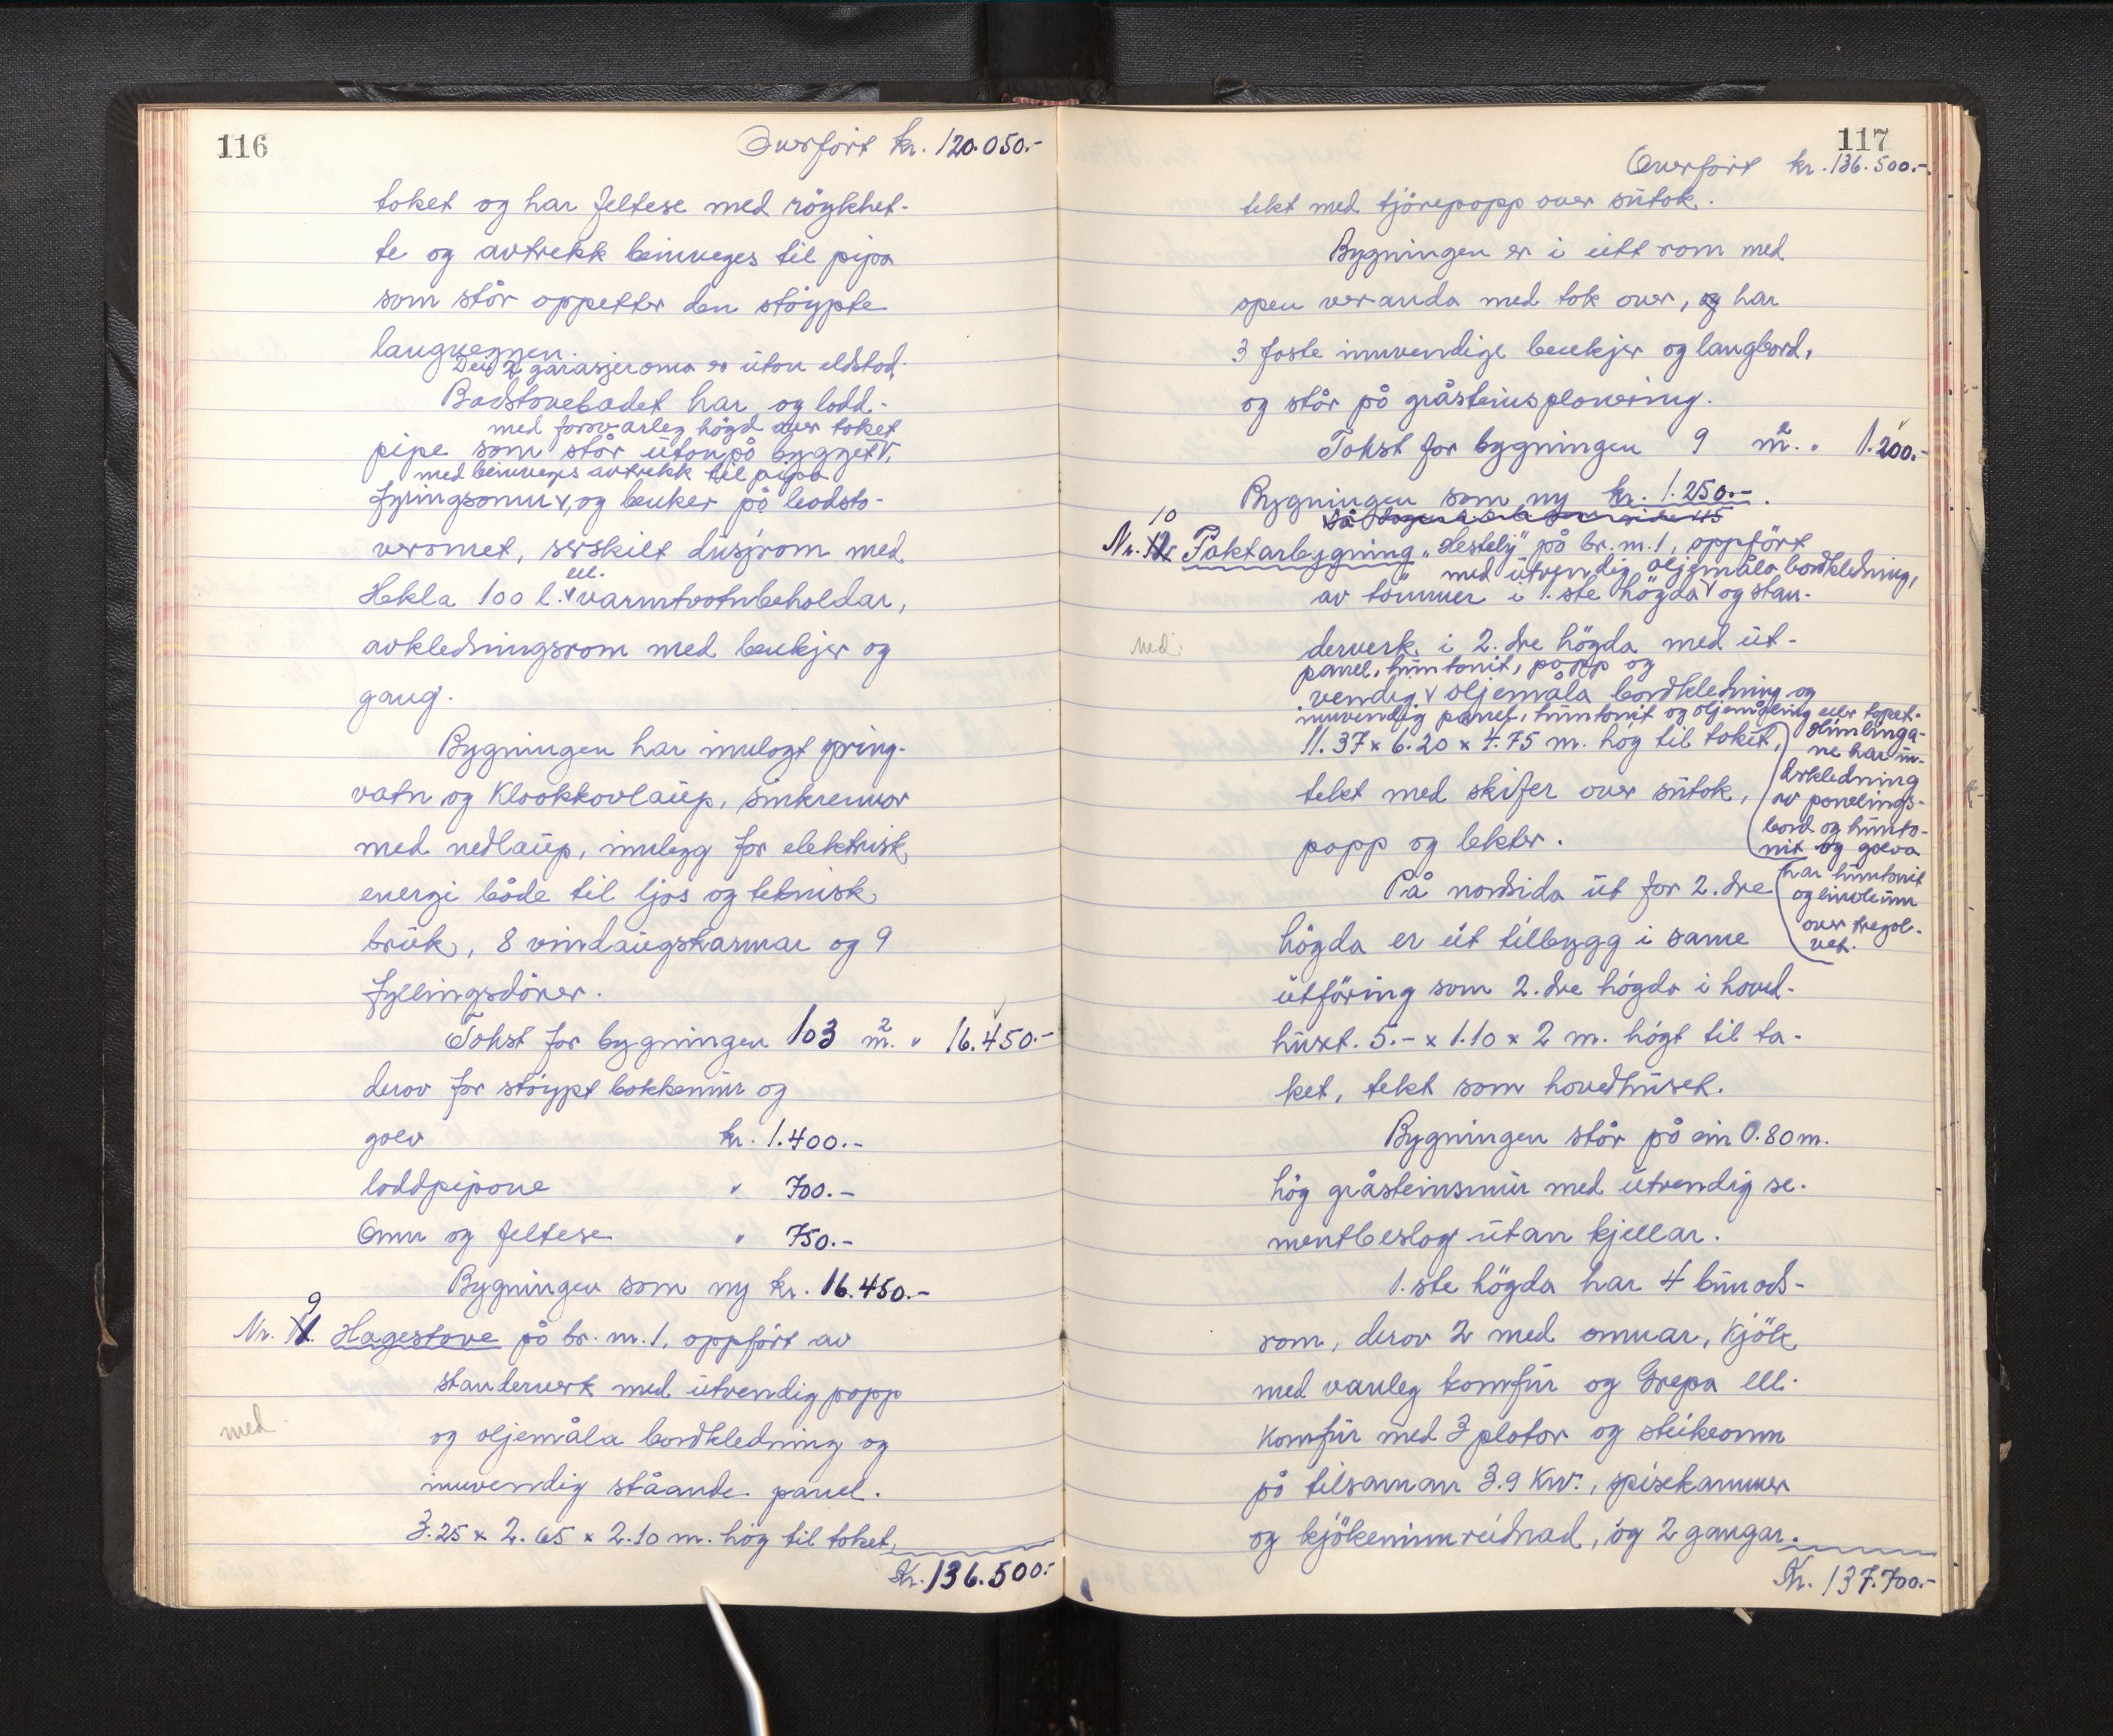 116
Overført kr. 120.050.-
taket og har feltese med röykhet-
te og avtrekk beinveges til pipa
som står oppetter den stöypte
langveggen.
Dei 2 garasjeroma er utan eldstad.
Badstovebadet har og ladd-
med forsvarleg högd over taket
pipe som står utanpå bygget,
med beinveges avtrekk til pipa
fyringsomn, og benker på badsto-
veromet, serskilt dusjrom med
ell.
Hekla 100 l. varmtvatnbeholdar,
avkledningsrom med benkjer og
gang.
Bygningen har innlagt spring-
vatn og kloakkavlaup, sinkrennor
med nedlaup, innlegg for elektrisk
energi både til ljos og teknisk
bruk, 8 vindaugskarmar og 9
fyllingsdörer.
Takst for bygningen 103 m² " 16.450.-
derav for stöypt bakkemur og
golv kr. 1.400.-
laddpipone " 700.-
Omn og feltese " 750.-
Bygningen som ny kr. 16.450.-
9
Nr. 11. Hagestove på br.nr. 1, oppfört av
standerverk med utvendig papp
med
og oljemåla bordkledning og
innvendig ståande panel.
3.25 x 2.65 x 2.10 m. hög til taket,
Kr. 136.500.-
117
Overført kr. 136.500.-
tekt med tjörepapp over sutak.
Bygningen er i eitt rom med
open veranda med tak over, og har
3 faste innvendige benkjer og langbord,
og står på gråsteinsplanering.
Takst for bygningen 9 m² " 1.200.-
Bygningen som ny kr. 1.250.-.
10
Nr. 12 Paktarbygning "Hestely" på br.nr. 1, oppfört
med utvendig oljemåla bordkledning,
av tömmer i 1.ste högda og stan-
ned.
derverk i 2.dre högda med ut-
panel, huntonit, papp og
vendig oljemåla bordkledning og
innvendig panel, huntonit og oljemåling eller tapet.
11.37 x 6.20 x 4.75 m. hög til taket,
tekt med skifer over sutak,
papp og lekter.
Himlinga-
ne har un-
derkledning
av panelings-
bord og hunto-
nit og golva
har huntonit
og linoleum
over tregol-
vet.
På nordsida ut for 2.dre
högda er eit tilbygg i same
utföring som 2.dre högda i hovud-
huset. 5.- x 1.10 x 2 m. högt til ta-
ket, tekt som hovedhuset.
Bygningen står på ein 0.80 m.
hög gråsteinsmur med utvendig se-
mentbeslag utan kjellar.
1.ste högda har 4 burods-
rom, derav 2 med omnar, kjök
med vanleg komfur og Grepa ell.
komfur med 3 plator og steikeomn
på tilsaman 3.9 Kw., spisekammer
og kjökeninnreidnad, og 2 gangar.
Kr. 137.700.-